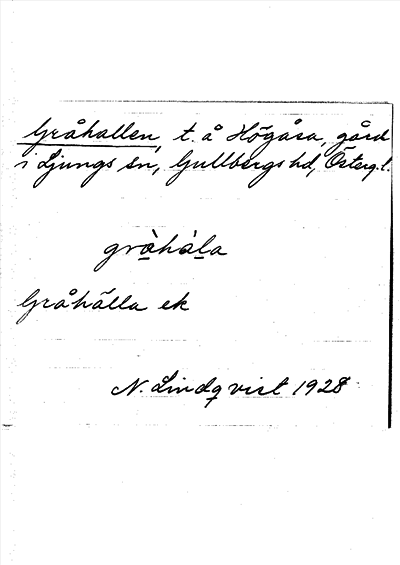 Gråhallen, t. å Högåsa, gård
i Ljungs sn, Gullbergs hd, Österg.l.
grå̀hála
Gråhälla ek
N. Lindqvist 1928